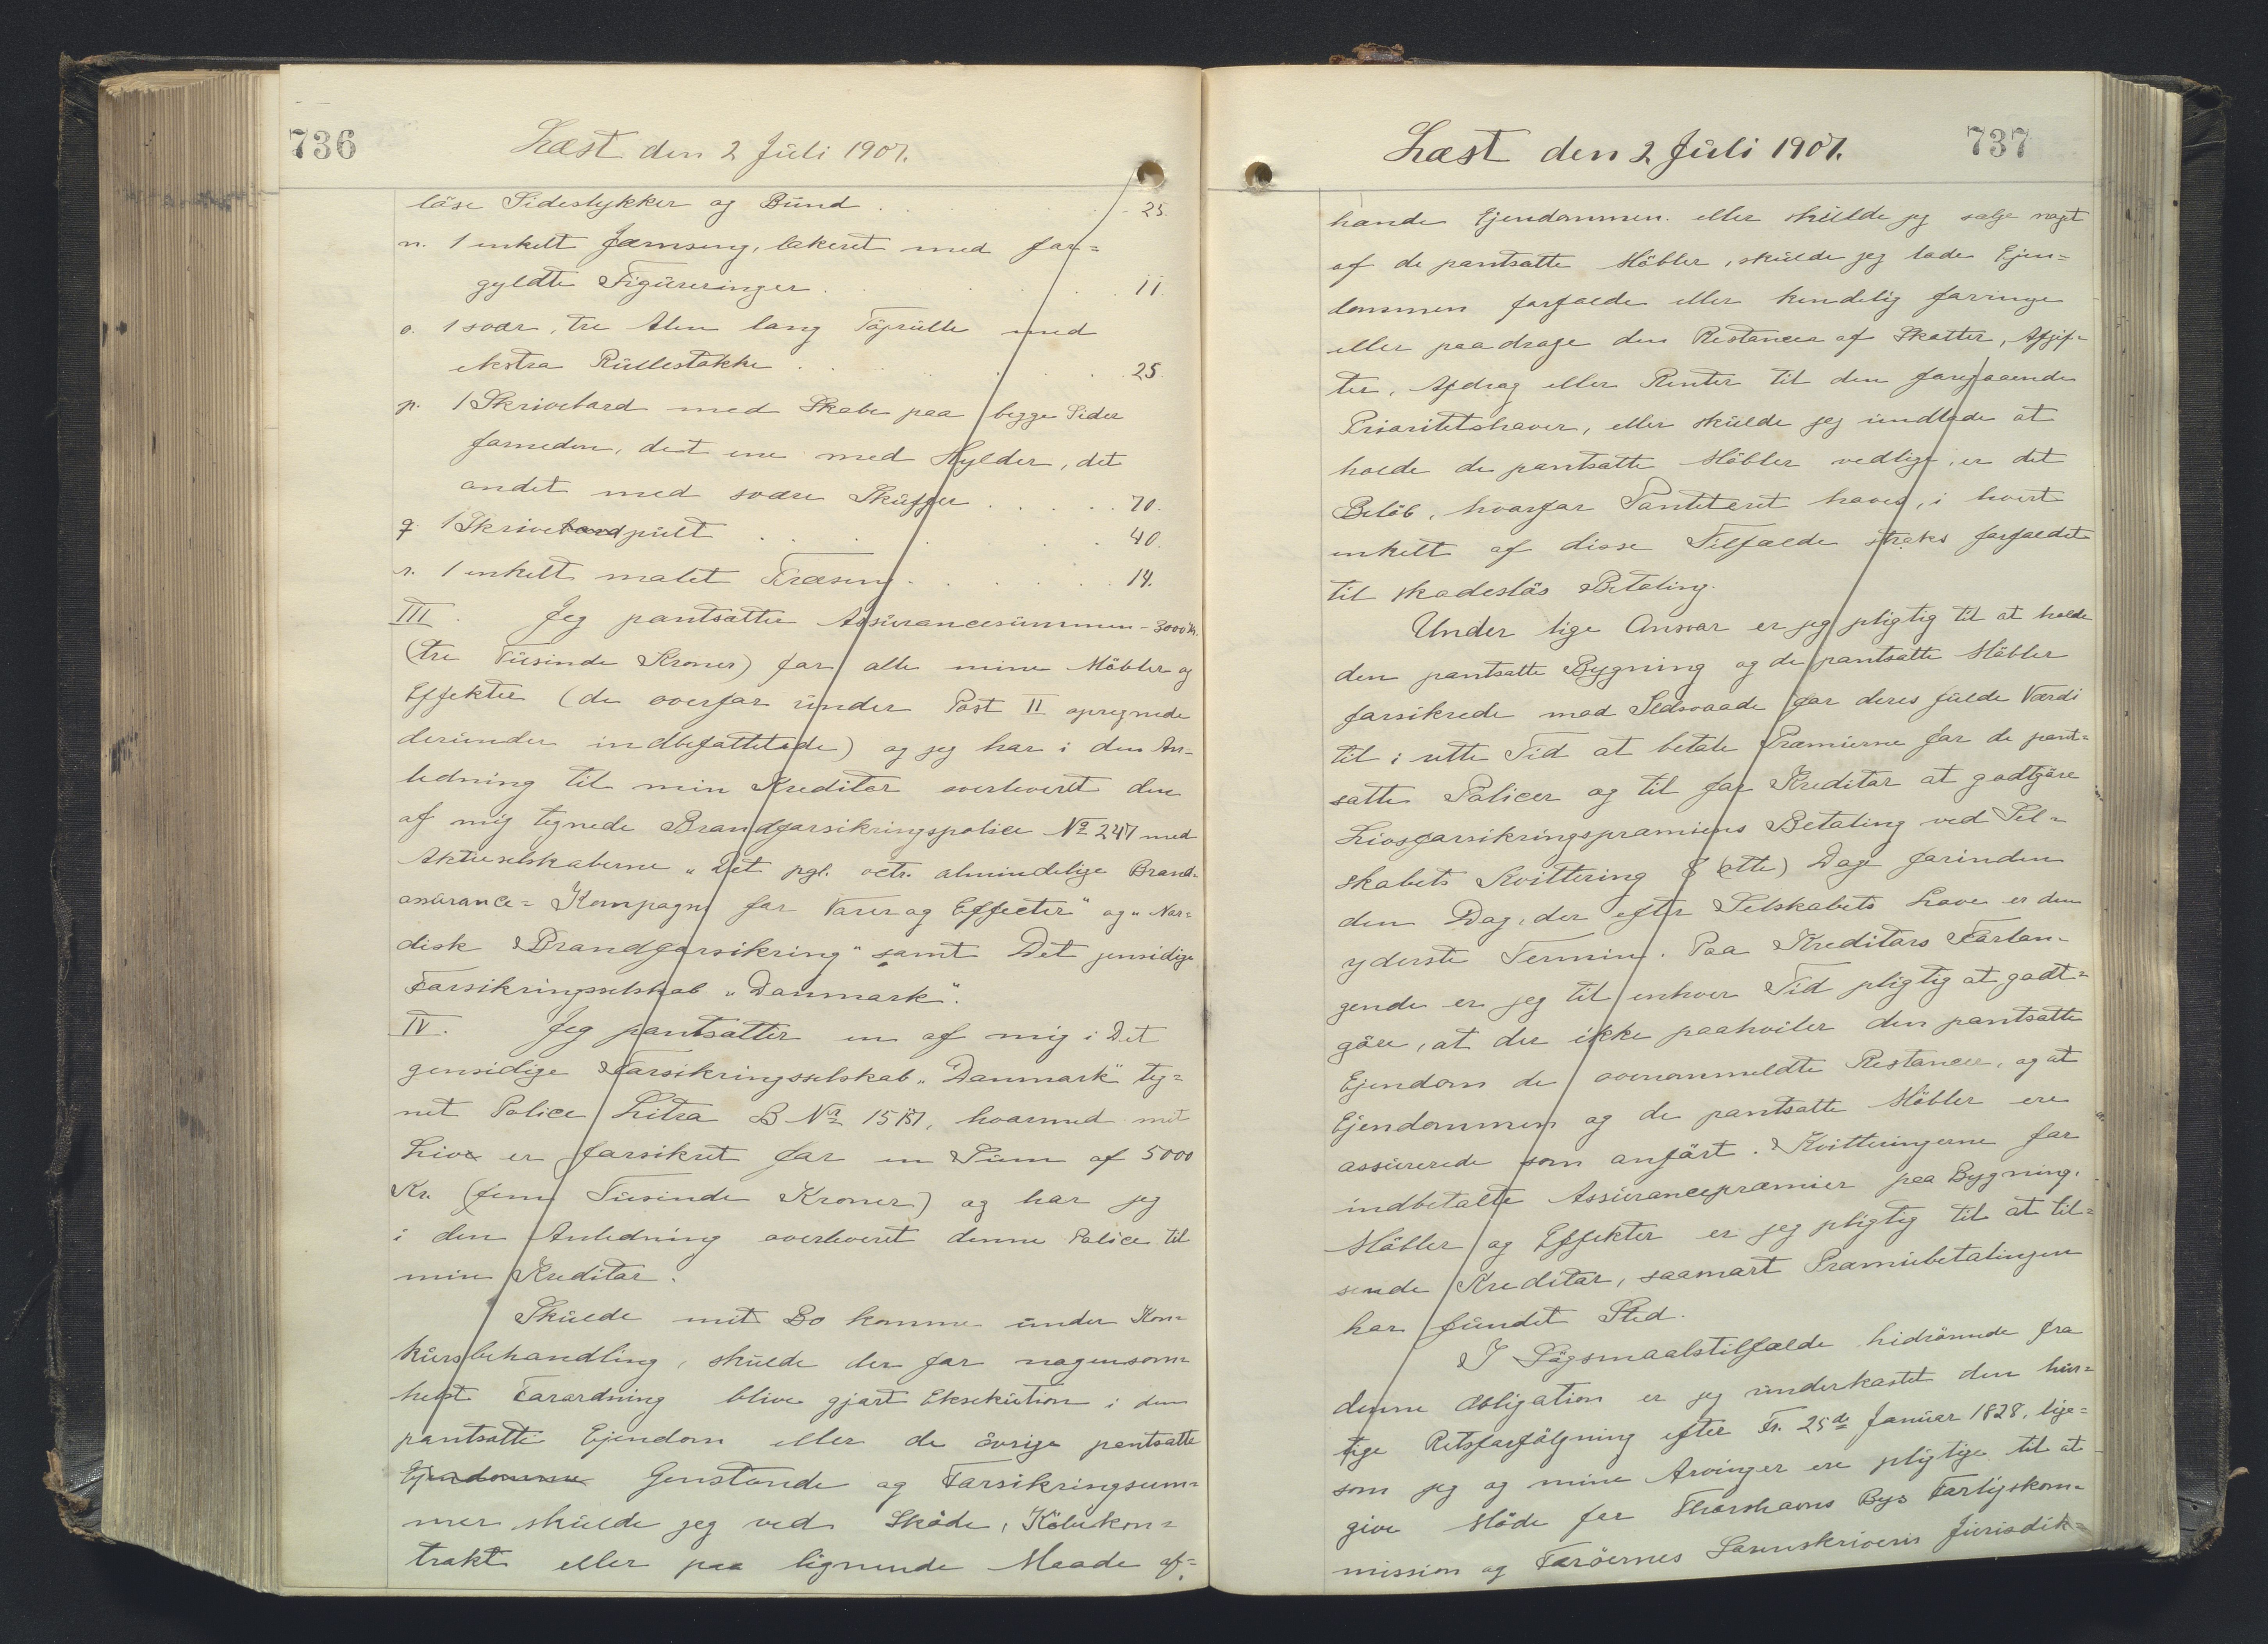 736
Læst den 2 Juli 1907.
löse Sidestykker og Bund . . . 25.
n. 1 enkelt Jærnseng, lakeret med for=
gyldte Figureringer . . . 11.
o. 1 svær, tre Alen lang Töjrulle med
ekstra Rullestokke . . . 25.
p. 1 Skrivebord med Skabe paa begge Sider
forneden, det ene med Hylder, det
andet med svære Skuffer . . . 70.
q. 1 Skrivebordpult . . . 40.
r. 1 enkelt malet Træseng . . . 14.
III. Jeg pantsætter Assurancesummen - 3000 Kr.
(tre Tusinde Kroner) for alle mine Möbler og
Effekter (de ovenfor under Post II opregnede
derunder indbefattede) og jeg har i den An-
ledning til min Kreditor overleveret den
af mig tegnede Brandforsikringspolice No 247 med
Aktieselskaberne „Det kgl. octr. almindelige Brand-
assurance= Kompagni for Varer og Effecter" og „Nor=
disk Brandforsikring" samt Det gensidige
Forsikringsselskab „Danmark".
IV. Jeg pantsætter en af mig i Det
gensidige Forsikringsselskab „Danmark" teg=
net Police Litra B No hvormed mit
Liv er forsikret for en Sum af 5000
Kr. (fem Tusinde Kroner) og har jeg
i den Anledning overleveret denne Police til
min Kreditor.
Skulde mit Bo komme under Kon=
kursbehandling, skulde der for nogensom=
helst Fordring blive gjort Eksekution i den
pantsatte Ejendom eller de övrige pantsatte
Ejendomme Genstande og Forsikringsum=
mer skulde jeg ved Sköde, Köbekon=
trakt eller paa lignende Maade af=
737
Læst den 2 Juli 1907.
hænde Ejendommen. eller skulde jeg sælge noget
af de pantsatte Möbler, skulde jeg lade Ejen=
dommen forfalde eller kendelig forringe
eller paadrage den Restancer af Skatter, Afgif=
ter, Afdrag eller Renter til den foregaaende
Prioritetshaver, eller skulde jeg undlade at
holde de pantsatte Möbler vedlige, er det
Belöb, hvorfor Panteret haves, i hvert
enkelt af disse Tilfælde straks forfaldet
til skadeslös Betaling.
Under lige Ansvar er jeg pligtig til at holde
den pantsatte Bygning og de pantsatte Möbler
forsikrede mod Ildsvaade for deres fulde Værdi
til i rette Tid at betale Præmierne for de pant=
satte Policer og til for Kreditor at godtgöre
Livsforsikringspræmiens Betaling ved Sel=
skabets Kvittering 8 (otte) Dage forinden
den Dag, der efter Selskabets Love er den
yderste Termin. Paa Kreditors Forlan-
gende er jeg til enhver Tid pligtig at godt=
göre, at der ikke paahviler den pantsatte
Ejendom de ovenommeldte Restancer, og at
Ejendommen og de pantsatte Möbler ere
assurerede som anfört. Kvitteringerne for
indbetalte Assurancepræmier paa Bygning,
Möbler og Effekter er jeg pligtig til at til=
sende Kreditor, saasnart Præmiebetalingen
har fundet Sted.
I Sögsmaalstilfælde hidrörende fra
denne Obligation er jeg underkastet den hur=
tige Retsforfölgning efter Fr. 25de Januar 1828, lige=
som jeg og mine Arvinger ere pligtige til at
give Möde for Thorshavns Bys Forligskom=
mission og Færöernes Sorenskriveris Jurisdik=